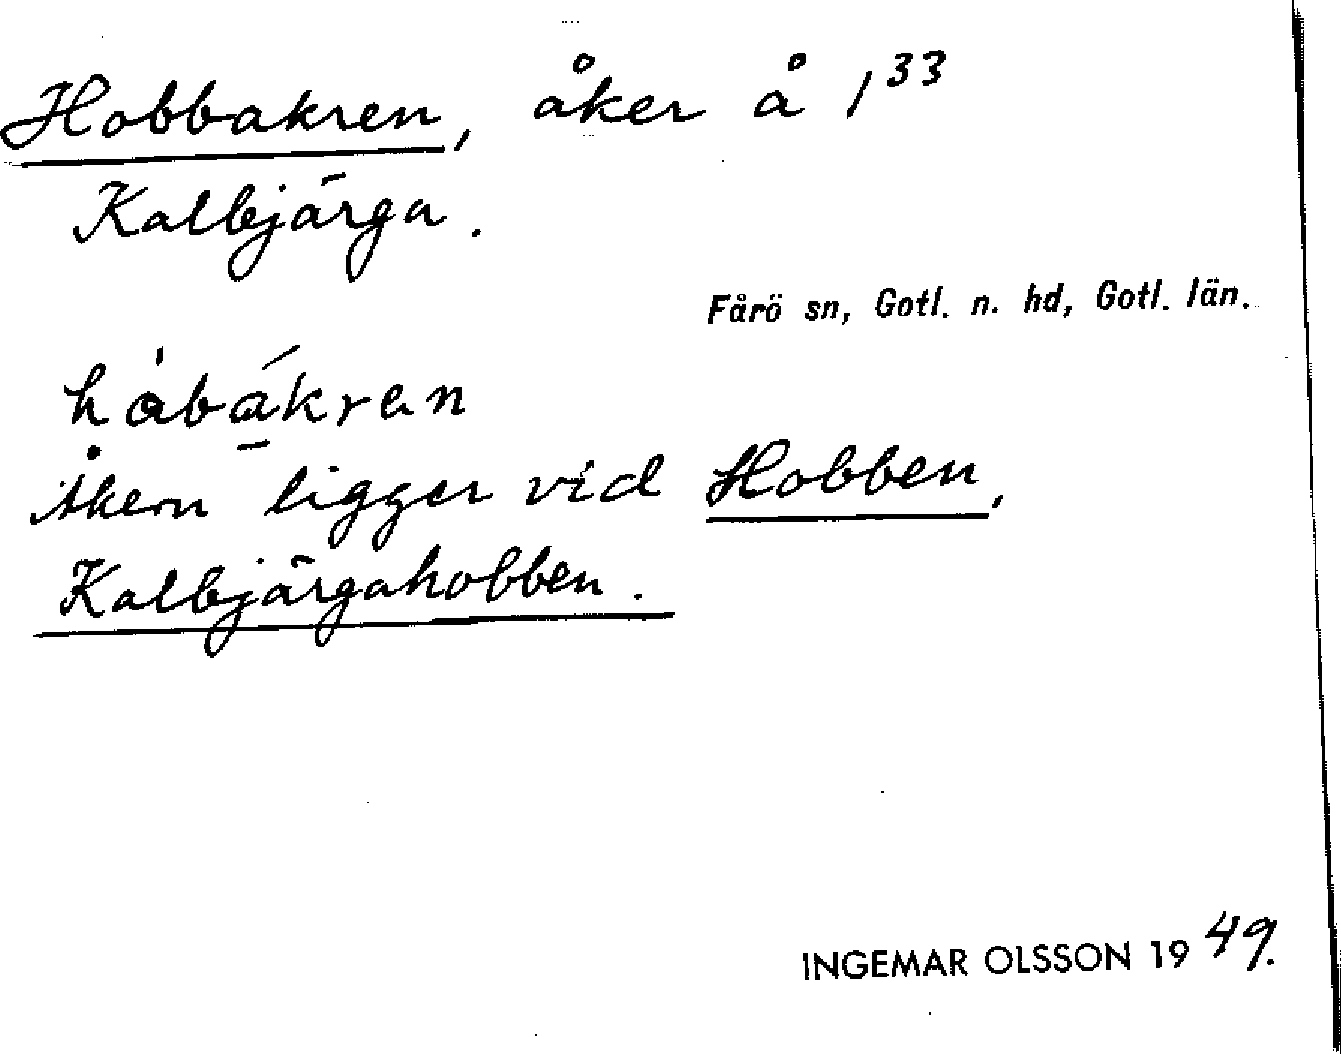 Hobbakren, åker å 1³³
Kalbjärga.
Fårö sn, Gotl. n. hd, Gotl. län.
håbákren
Åkern ligger vid Hobben,
Kalbjärgahobben.
INGEMAR OLSSON 1949.